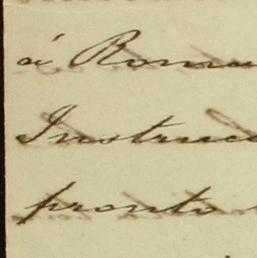 á Roma
Instruc
pronto